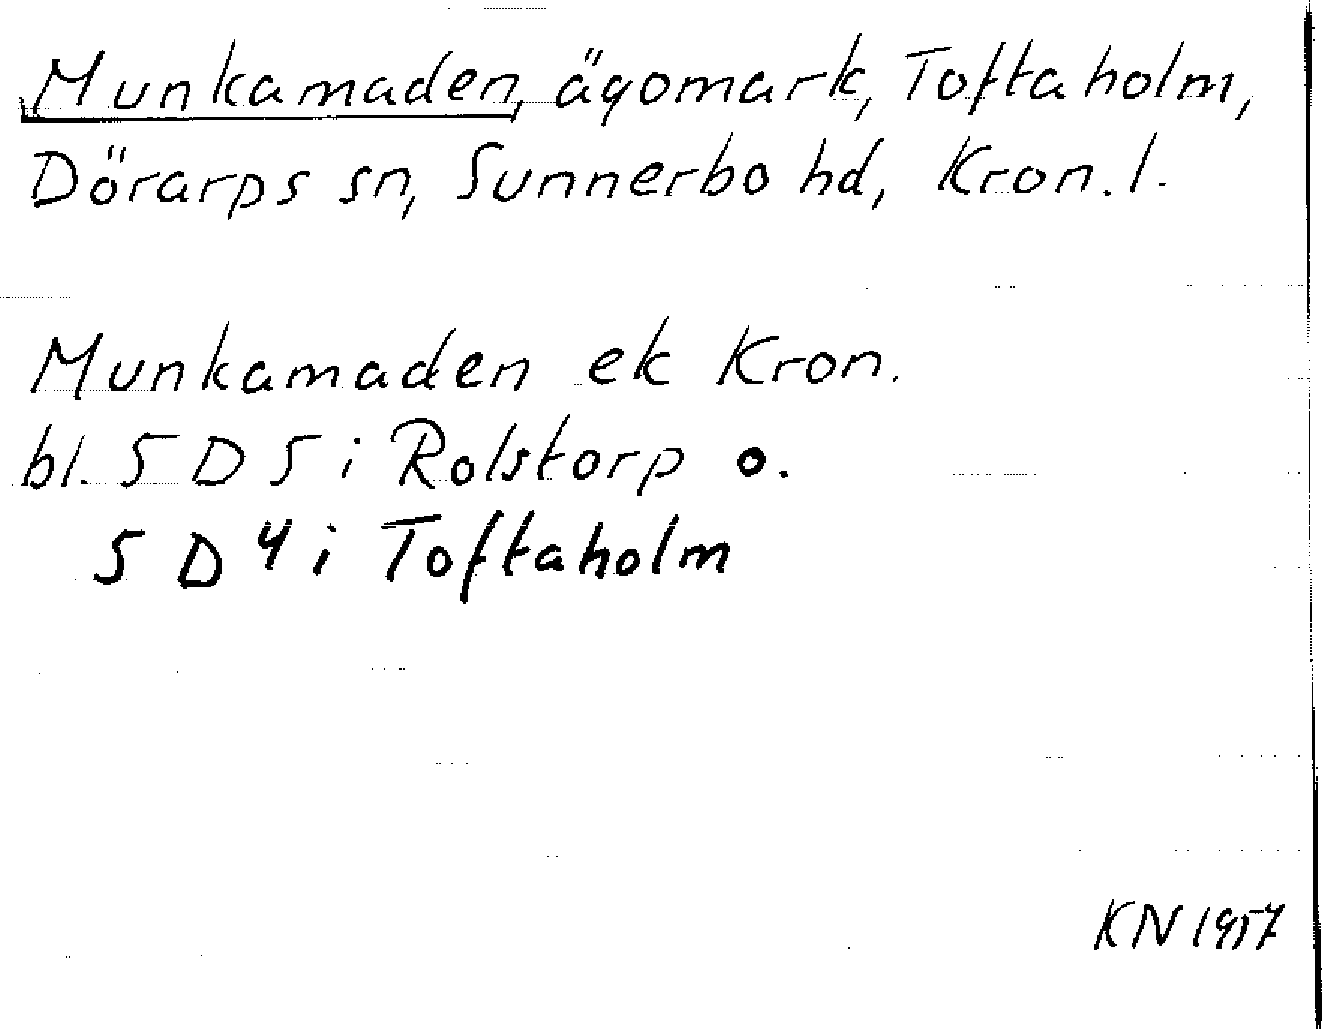 Munkamaden, ägomark, Toftaholm,
Dörarps sn, Sunnerbo hd, Kron. l.
Munkamaden ek Kron.
bl. 5 D 5 i Rolstorp o.
5 D 4 i Toftaholm
KN 1957